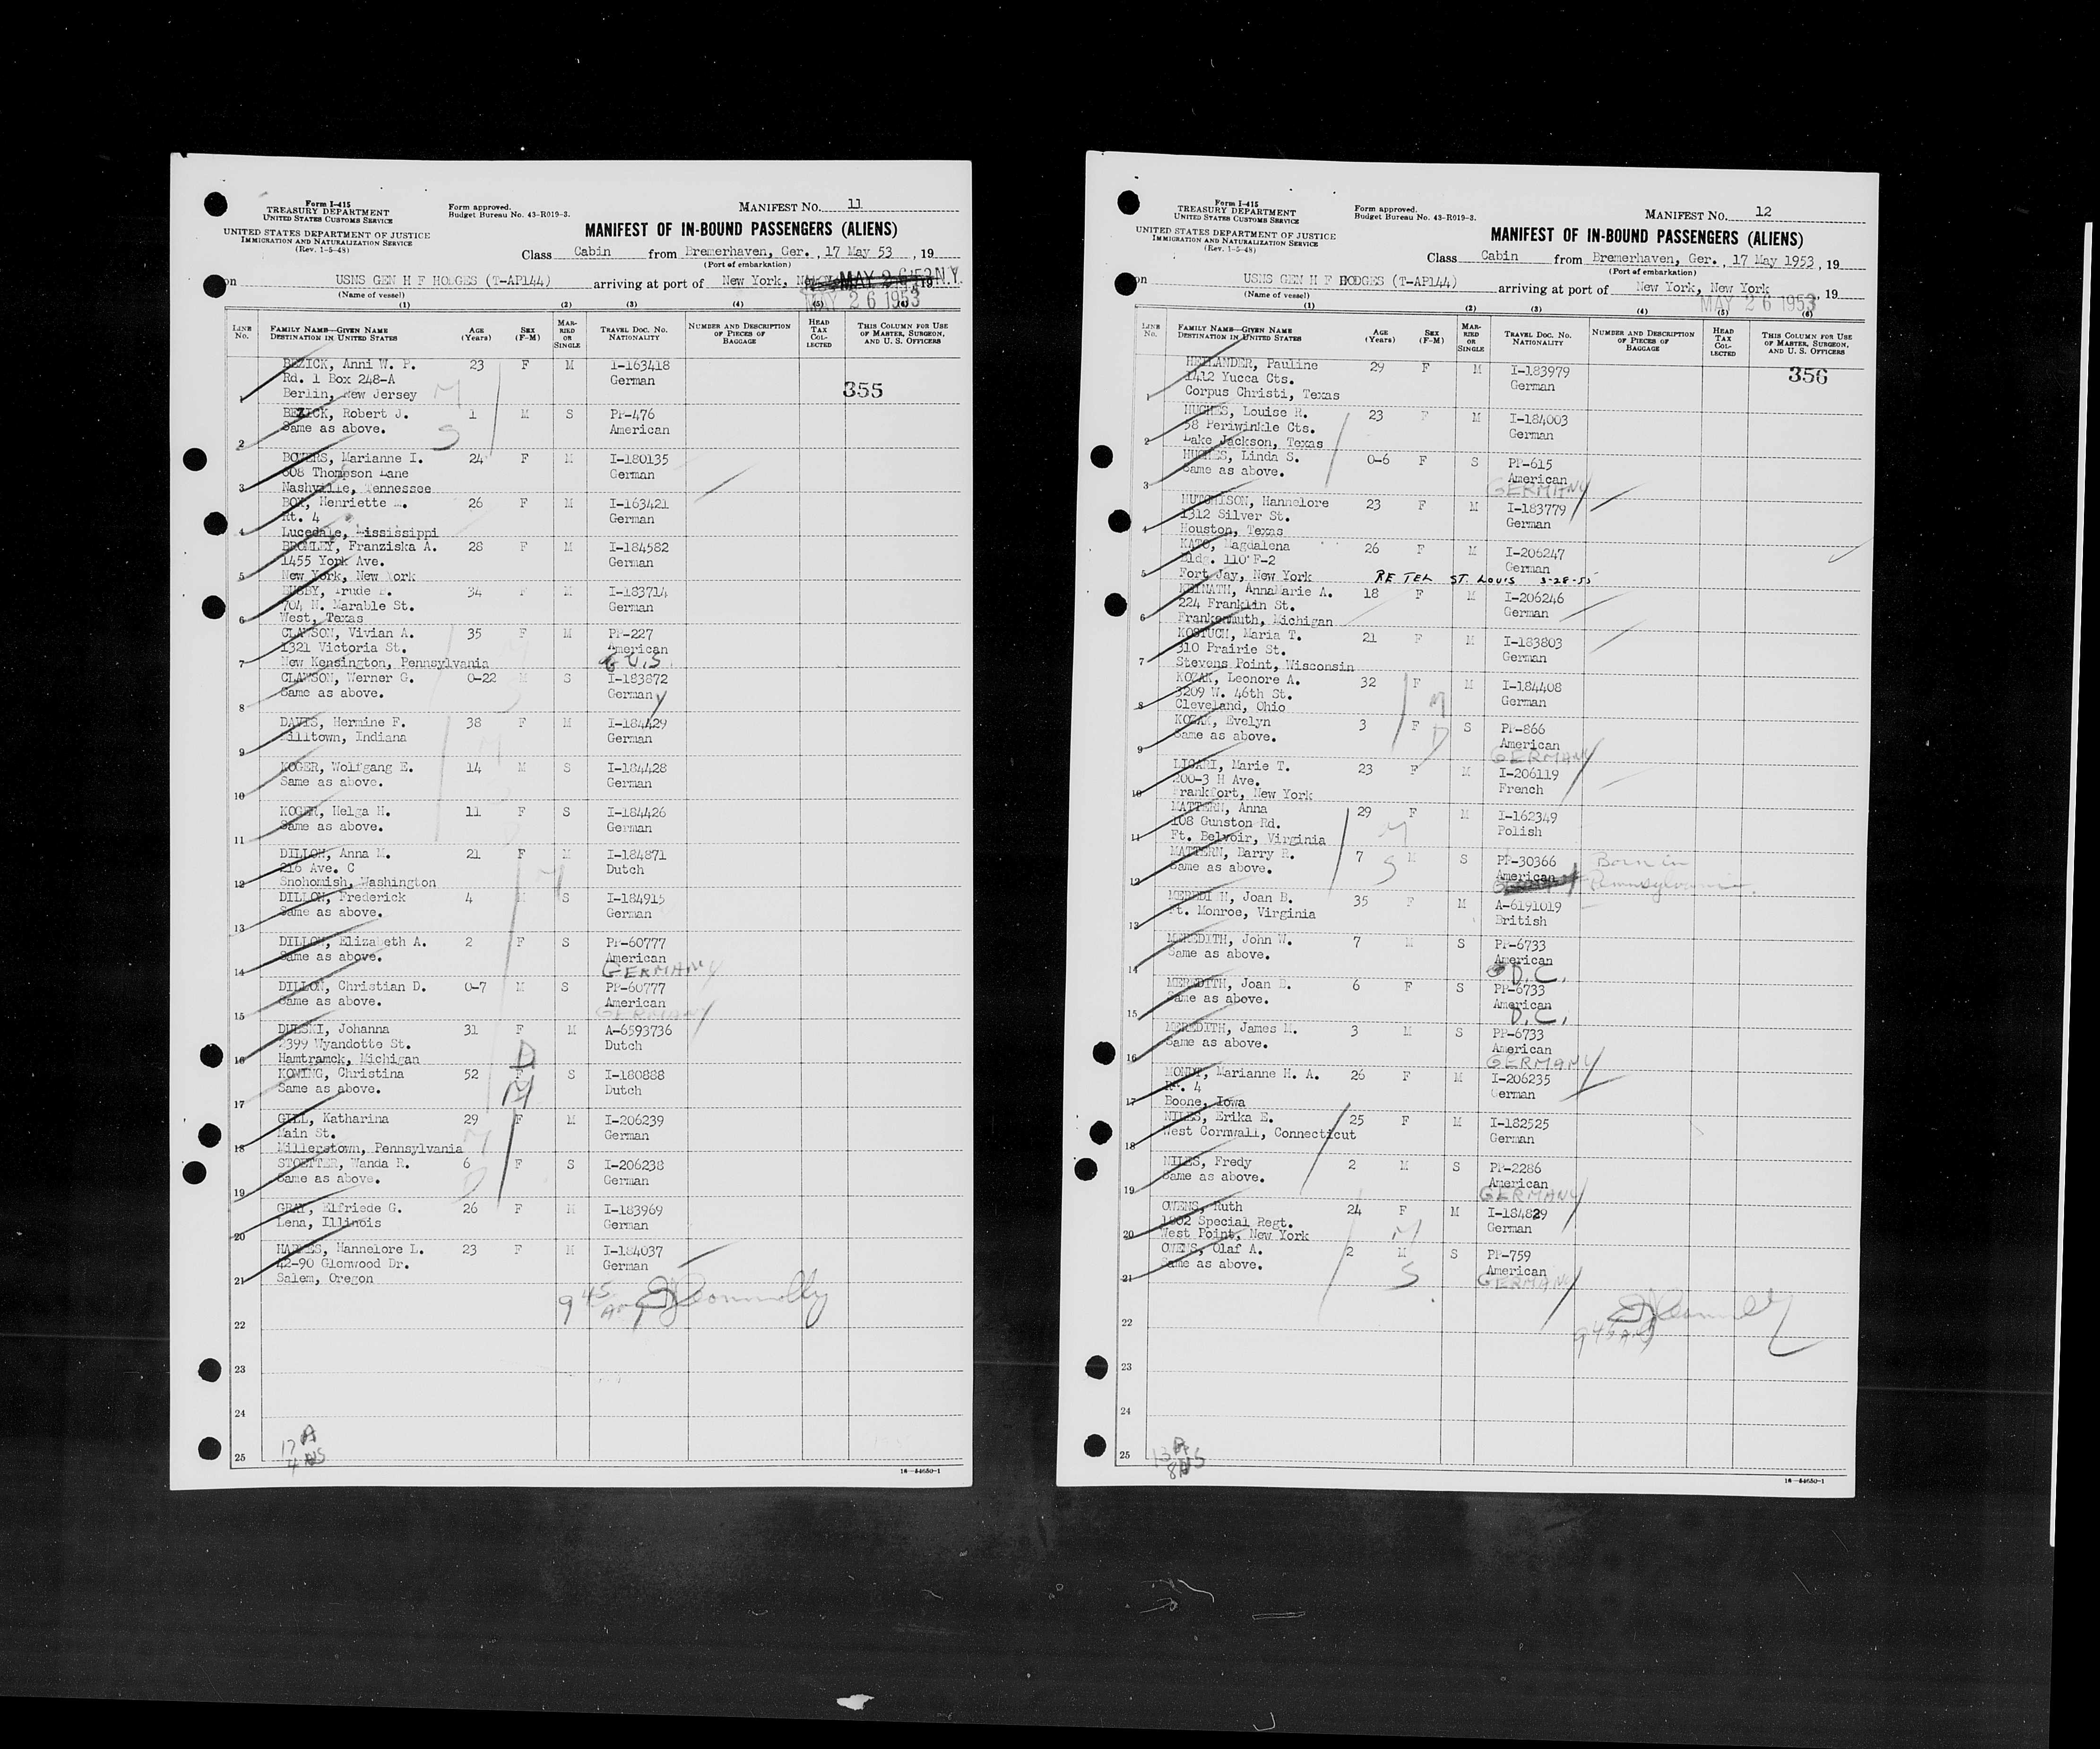 Form I-415
TREASURY DEPARTMENT
UNITED STATES CUSTOMS SERVICE
UNITED STATES DEPARTMENT OF JUSTICE
IMMIGRATION AND NATURALIZATION SERVICE
(Rev. 1-5-48)
Form approved.
Budget Bureau No. 43-R019-3.
MANIFEST No. 11
MANIFEST OF IN-BOUND PASSENGERS (ALIENS)
Class Cabin from Bremerhaven, Ger., 17 May 53, 19
(Port of embarkation)
on USNS GEN H F HODGES (T-AP144) arriving at port of New York, N.Y.
(Name of vessel)
MAY 26 1953
(1) (2) (3) (4) (5) (6)
LINE No. FAMILY NAME—GIVEN NAME DESTINATION IN UNITED STATES AGE (Years) SEX (F-M) MARRIED OR SINGLE TRAVEL DOC. No. NATIONALITY NUMBER AND DESCRIPTION OF PIECES OF BAGGAGE HEAD TAX COLLECTED THIS COLUMN FOR USE OF MASTER, SURGEON, AND U. S. OFFICERS
355
1 BEZICK, Anni W. P. 23 F M I-163418
Rd. 1 Box 248-A German
Berlin, New Jersey
2 BEZICK, Robert J. 1 M S PP-476
Same as above. American
3 BOWERS, Marianne I. 24 F M I-180135
608 Thompson Lane German
Nashville, Tennessee
4 BOX, Henriette 26 F M I-163421
Rt. 4 German
Lucedale, Mississippi
5 BROMLEY, Franziska A. 28 F M I-184582
1455 York Ave. German
New York, New York
6 BUSBY, Trude 34 F M I-183714
704 N. Marable St. German
West, Texas
7 CLAWSON, Vivian A. 35 F M PP-227
1321 Victoria St. American
New Kensington, Pennsylvania U.S.
8 CLAWSON, Werner G. 0-22 M S I-183872
Same as above. German
9 DAVIS, Hermine F. 38 F M I-184429
Milltown, Indiana German
10 KOGER, Wolfgang E. 14 M S I-184428
Same as above. German
11 KOGER, Helga H. 11 F S I-184426
Same as above. German
12 DILLON, Anna M. 21 F M I-184871
216 Ave. C Dutch
Snohomish, Washington
13 DILLON, Frederick 4 M S I-184915
Same as above. German
14 DILLON, Elizabeth A. 2 F S PP-60777
Same as above. American
GERMANY
15 DILLON, Christian D. 0-7 M S PP-60777
Same as above. American
GERMANY
16 DULSKI, Johanna 31 F M A-6593736
2399 Wyandotte St. Dutch
Hamtramck, Michigan
17 KOWING, Christina 52 F S I-180888
Same as above. Dutch
18 GILL, Katharina 29 F M I-206239
Main St. German
Millerstown, Pennsylvania
19 STOETTER, Wanda R. 6 F S I-206238
Same as above. German
20 GRAY, Elfriede G. 26 F M I-183969
Lena, Illinois German
21 HAYNES, Hannelore L. 23 F M I-184037
42-90 Glenwood Dr. German
Salem, Oregon
9 45 AM Connolly
22
23
24
25
17 A
4 NS
16-54650-1
Form I-415
TREASURY DEPARTMENT
UNITED STATES CUSTOMS SERVICE
UNITED STATES DEPARTMENT OF JUSTICE
IMMIGRATION AND NATURALIZATION SERVICE
(Rev. 1-5-48)
Form approved.
Budget Bureau No. 43-R019-3.
MANIFEST No. 12
MANIFEST OF IN-BOUND PASSENGERS (ALIENS)
Class Cabin from Bremerhaven, Ger., 17 May 1953, 19
(Port of embarkation)
on USNS GEN H F HODGES (T-AP144) arriving at port of New York, New York, 19
(Name of vessel)
MAY 26 1953
(1) (2) (3) (4) (5) (6)
LINE No. FAMILY NAME—GIVEN NAME DESTINATION IN UNITED STATES AGE (Years) SEX (F-M) MARRIED OR SINGLE TRAVEL DOC. No. NATIONALITY NUMBER AND DESCRIPTION OF PIECES OF BAGGAGE HEAD TAX COLLECTED THIS COLUMN FOR USE OF MASTER, SURGEON, AND U. S. OFFICERS
356
1 HEILANDER, Pauline 29 F M I-183979
1412 Yucca Cts. German
Corpus Christi, Texas
2 HUGHES, Louise R. 23 F M I-184003
58 Periwinkle Cts. German
Lake Jackson, Texas
3 HUGHES, Linda S. 0-6 F S PP-615
Same as above. American
GERMANY
4 HUTCHISON, Hannelore 23 F M I-183779
1312 Silver St. German
Houston, Texas
5 KATO, Magdalena 26 F M I-206247
Bldg. 110 F-2 German
Fort Jay, New York RE TEL ST. LOUIS 3-28-55
6 KEINATH, AnnaMarie A. 18 F M I-206246
224 Franklin St. German
Frankenmuth, Michigan
7 KOSTUCH, Maria T. 21 F M I-183803
310 Prairie St. German
Stevens Point, Wisconsin
8 KOZAK, Leonore A. 32 F M I-184408
3209 W. 46th St. German
Cleveland, Ohio
9 KOZAK, Evelyn 3 F S PP-866
Same as above. American
GERMANY
10 LIGARI, Marie T. 23 F M I-206119
200-3 H Ave. French
Frankfort, New York
11 MATTERN, Anna 29 F M I-162349
108 Gunston Rd. Polish
Ft. Belvoir, Virginia
12 MATTERN, Darry R. 7 M S PP-30366 Born in
Same as above. American Pennsylvania.
13 MEREDITH, Joan B. 35 F M A-6191019
Ft. Monroe, Virginia British
14 MEREDITH, John W. 7 M S PP-6733
Same as above. American
D.C.
15 MEREDITH, Joan D. 6 F S PP-6733
Same as above. American
D.C.
16 MEREDITH, James M. 3 M S PP-6733
Same as above. American
GERMANY
17 MONDT, Marianne H. A. 26 F M I-206235
Rt. 4 German
Boone, Iowa
18 NILES, Erika E. 25 F M I-182525
West Cornwall, Connecticut German
19 NILES, Fredy 2 M S PP-2286
Same as above. American
GERMANY
20 OWENS, Ruth 24 F M I-184829
1802 Special Regt. German
West Point, New York
21 OWENS, Olaf A. 2 M S PP-759
Same as above. American
GERMANY
22
23
24
25
13 A
8 NS
16-54650-1